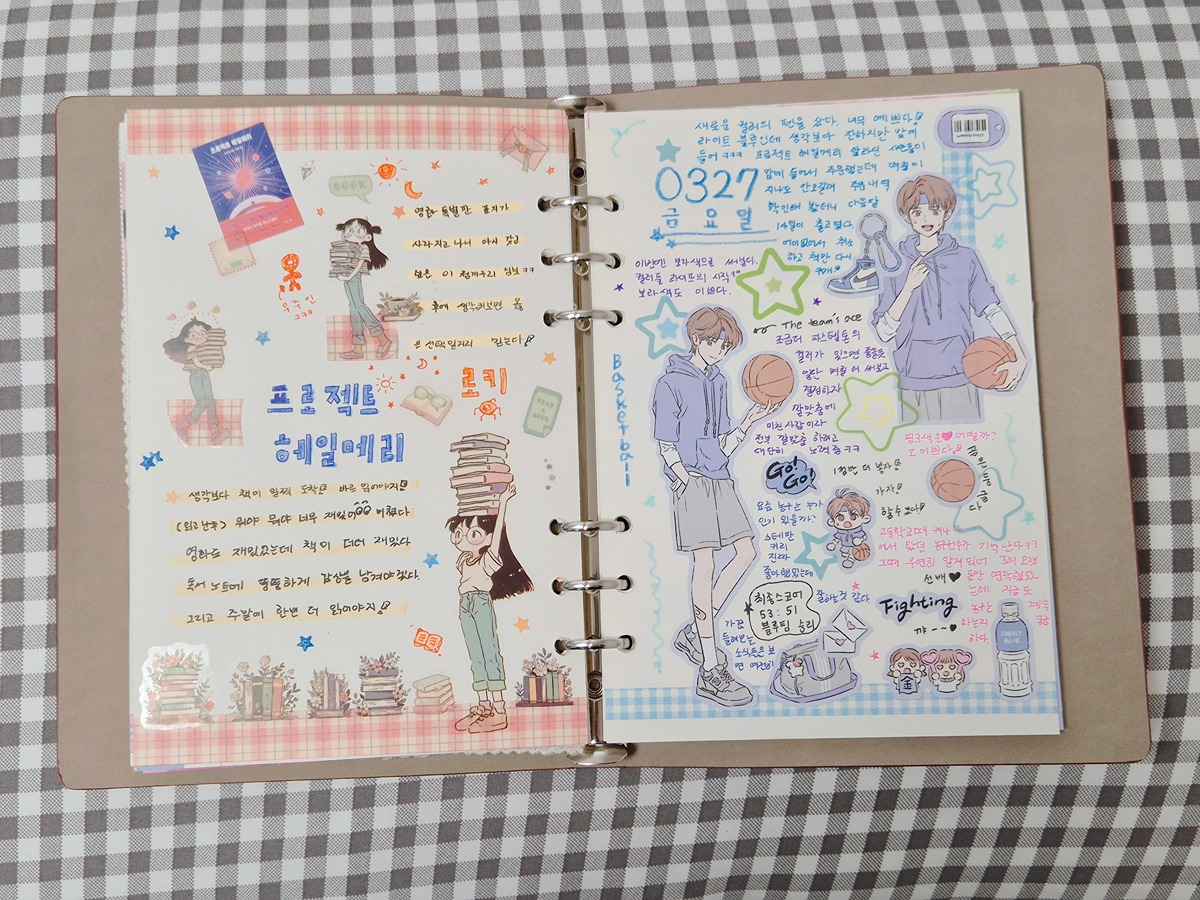 프로젝트 헤일메리
BOOK
영화 특별판 표지가
사라지고 나니 다시 갖고
싶은 이 청개구리 심보 ㅋㅋ
후에 생각해보면 옳
은 선택일거라 믿는다
우주인
ㅋㅋㅋ
프로젝트
헤일메리
로키
READ A BOOK
생각보다 책이 일찍 도착! 바로 읽어야지!
뭐야 뭐야 너무 재밌어 미쳤다
영화도 재밌었는데 책이 더더 재밌다
독서 노트에 뚱뚱하게 감상을 남겨야겠다.
그리고 주말에 한번 더 읽어야지
새로운 컬러의 펜을 샀다. 너무 예쁘다!
라이트 블루인데 생각보다 진하지만 맘에
들어 ㅋㅋㅋ 프로젝트 헤일메리 알라딘
맘에 들어서 주문했는데 며칠이
지나도 안오길래 주문내역
확인해 봤더니 다음달
14일이 출고였다.
취소
하고 책만 다시
0327
금요일
이번엔 보라색으로 써본다.
컬러풀 라이프의 시작
보라색도 이쁘다.
The team's ace
조금더 파스텔톤의
컬러가 있으면 좋을듯
일단 며칠 더 써보고
결정하자
깔맞춤에
미친 사람이라
전부 깔맞춤 하려고
대단히 노력 중 ㅋㅋ
Basketball
핑크색은 어떨까?
오 이쁘다
GO! GO!
1절만 더 놓자
가자!
할 수 있다!
요즘 농구는 누가
인기 있을까?
스테판
커리
진짜
좋아했었는데
고등학교때
에서 봤던 농구선수가 기억난다 ㅋㅋ
그때 우연히 알게 되어
선배
동안 연락했었
는데 지금도
농구는 계속
하는지
하다.
최종스코어
53 : 51
블루팀 승리
잘하는것 같다
가끔
들려오는
소식들을 보
면 여전히
Fighting
꺄~~
金
COBALT BLUE